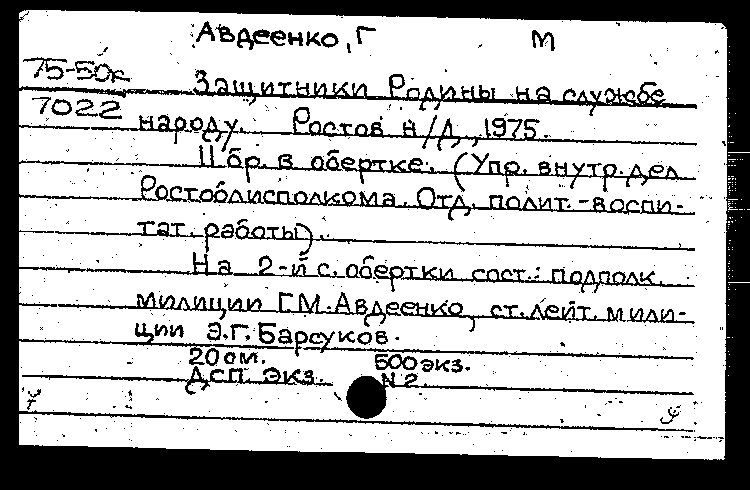 Авдеенко, Г М
75-50к
Защитники Родины на службе
7022
народу. Ростов н/Д, 1975.
11 бр. в обертке. (Упр. внутр. дел
Ростоблисполкома. Отд. полит.-воспи-
тат. работы).
На 2-й с. обертки сост.: подполк.
милиции Г.М. Авдеенко, ст. лейт. мили-
ции Э.Г. Барсуков.
20 см. 500 экз.
Дсп. экз. N 2.